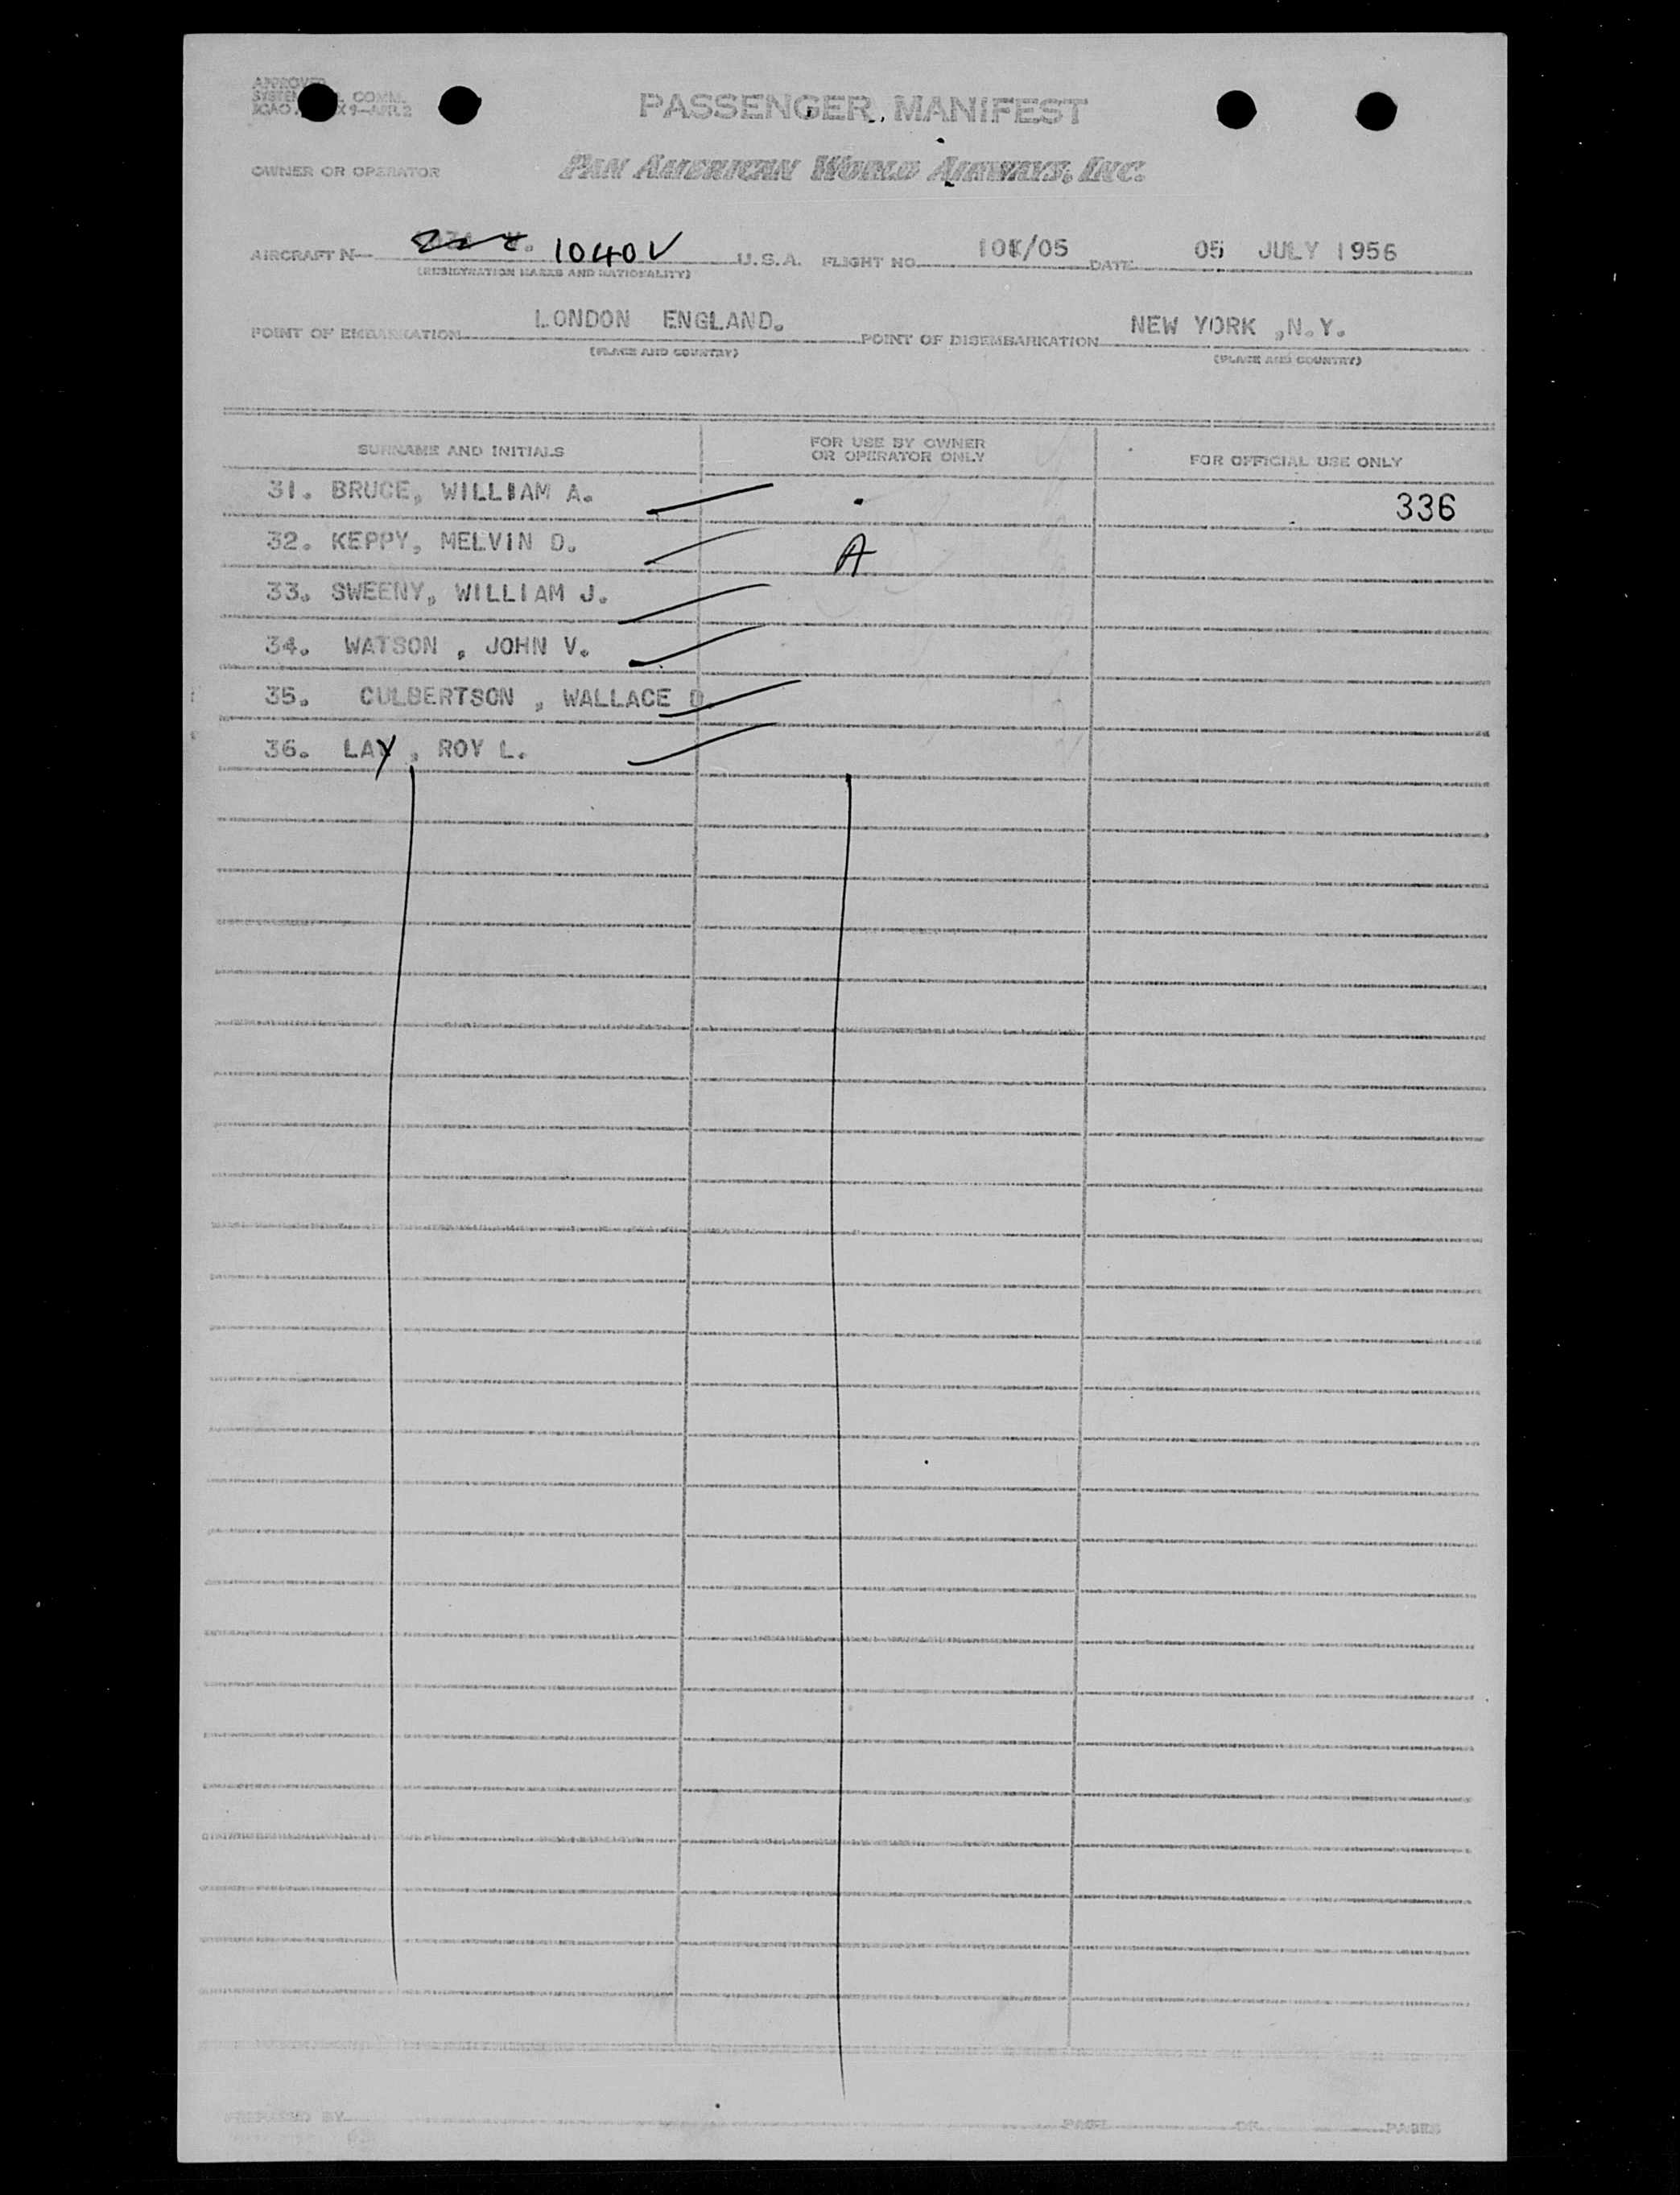 APPROVED
SYSTEM COMM.
9—APR. 2
PASSENGER MANIFEST
OWNER OR OPERATOR PAN AMERICAN WORLD AIRWAYS, INC.
AIRCRAFT N 1040V U.S.A. FLIGHT NO. /05 DATE 05 JULY 1956
(REGISTRATION MARKS AND NATIONALITY)
POINT OF EMBARKATION LONDON ENGLAND. POINT OF DISEMBARKATION NEW YORK ,N.Y.
(PLACE AND COUNTRY) (PLACE AND COUNTRY)
SURNAME AND INITIALS FOR USE BY OWNER OR OPERATOR ONLY FOR OFFICIAL USE ONLY
31. BRUCE, WILLIAM A. 336
32. KEPPY, MELVIN D. A
33. SWEENY, WILLIAM J.
34. WATSON , JOHN V.
35. CULBERTSON , WALLACE D.
36. LAY , ROY L.
PREPARED BY PAGE OF PAGES